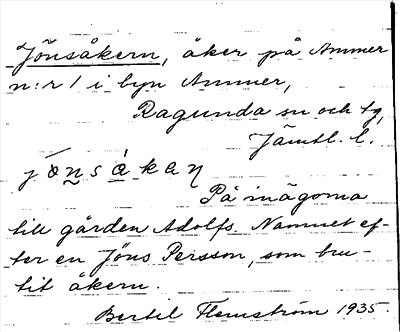 Jönsåkern, åker på Ammer
n:r 1 i byn Ammer,
Ragunda sn och tg,
Jämtl. l.
På inägorna
till gården Adolfs. Namnet ef-
ter en Jöns Persson, som bru-
tit åkern.
Bertil Flemström 1935.